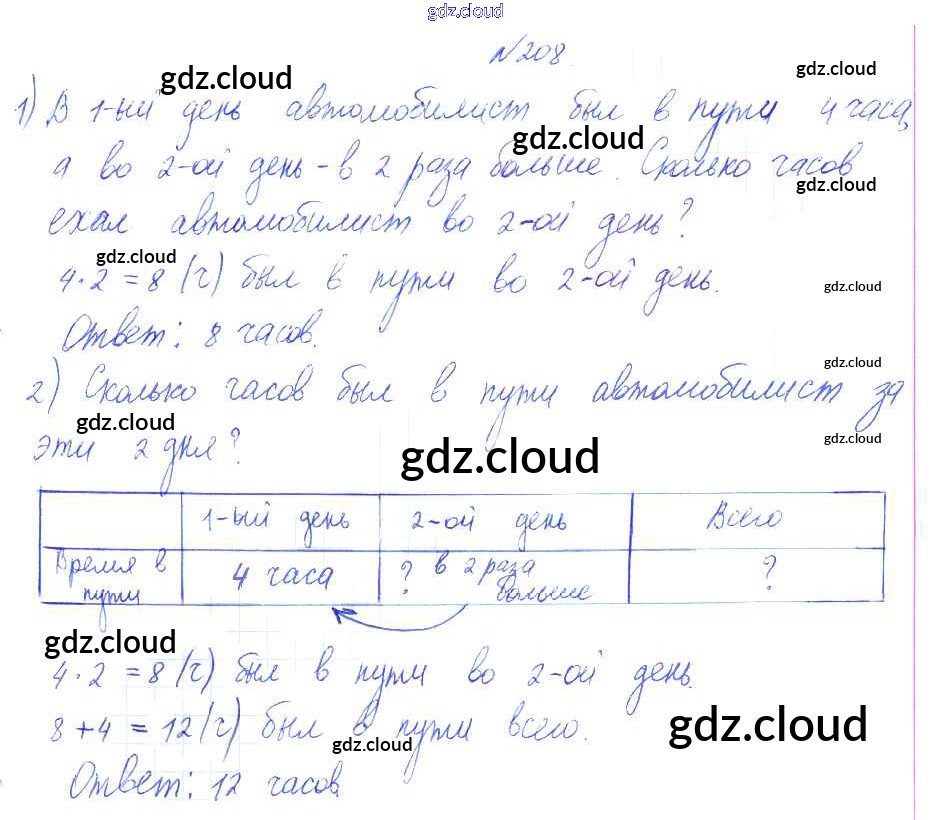 gdz.cloud
№208.
gdz.cloud gdz.cloud
1) В 1-ый день автомобилист был в пути 4 часа,
gdz.cloud
а во 2-ой день - в 2 раза больше. Сколько часов
gdz.cloud
ехал автомобилист во 2-ой день?
gdz.cloud
4·2=8 (ч) был в пути во 2-ой день.
gdz.cloud
Ответ: 8 часов.
gdz.cloud
2) Сколько часов был в пути автомобилист за
gdz.cloud
эти 2 дня?
gdz.cloud
gdz.cloud
1-ый день 2-ой день Всего
Время в пути 4 часа ? в 2 раза больше ?
gdz.cloud
4·2=8 (ч) был в пути во 2-ой день.
8+4=12 (ч) был в пути всего.
gdz.cloud
gdz.cloud
Ответ: 12 часов